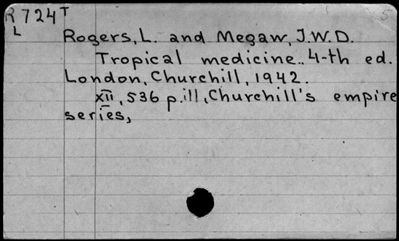 R 724 T
L
Rogers, L. and Megaw, J.W.D.
Tropical medicine.. 4-th ed.
London, Churchill, 1942.
XII, 536 p. ill, Churchill's empire
series,